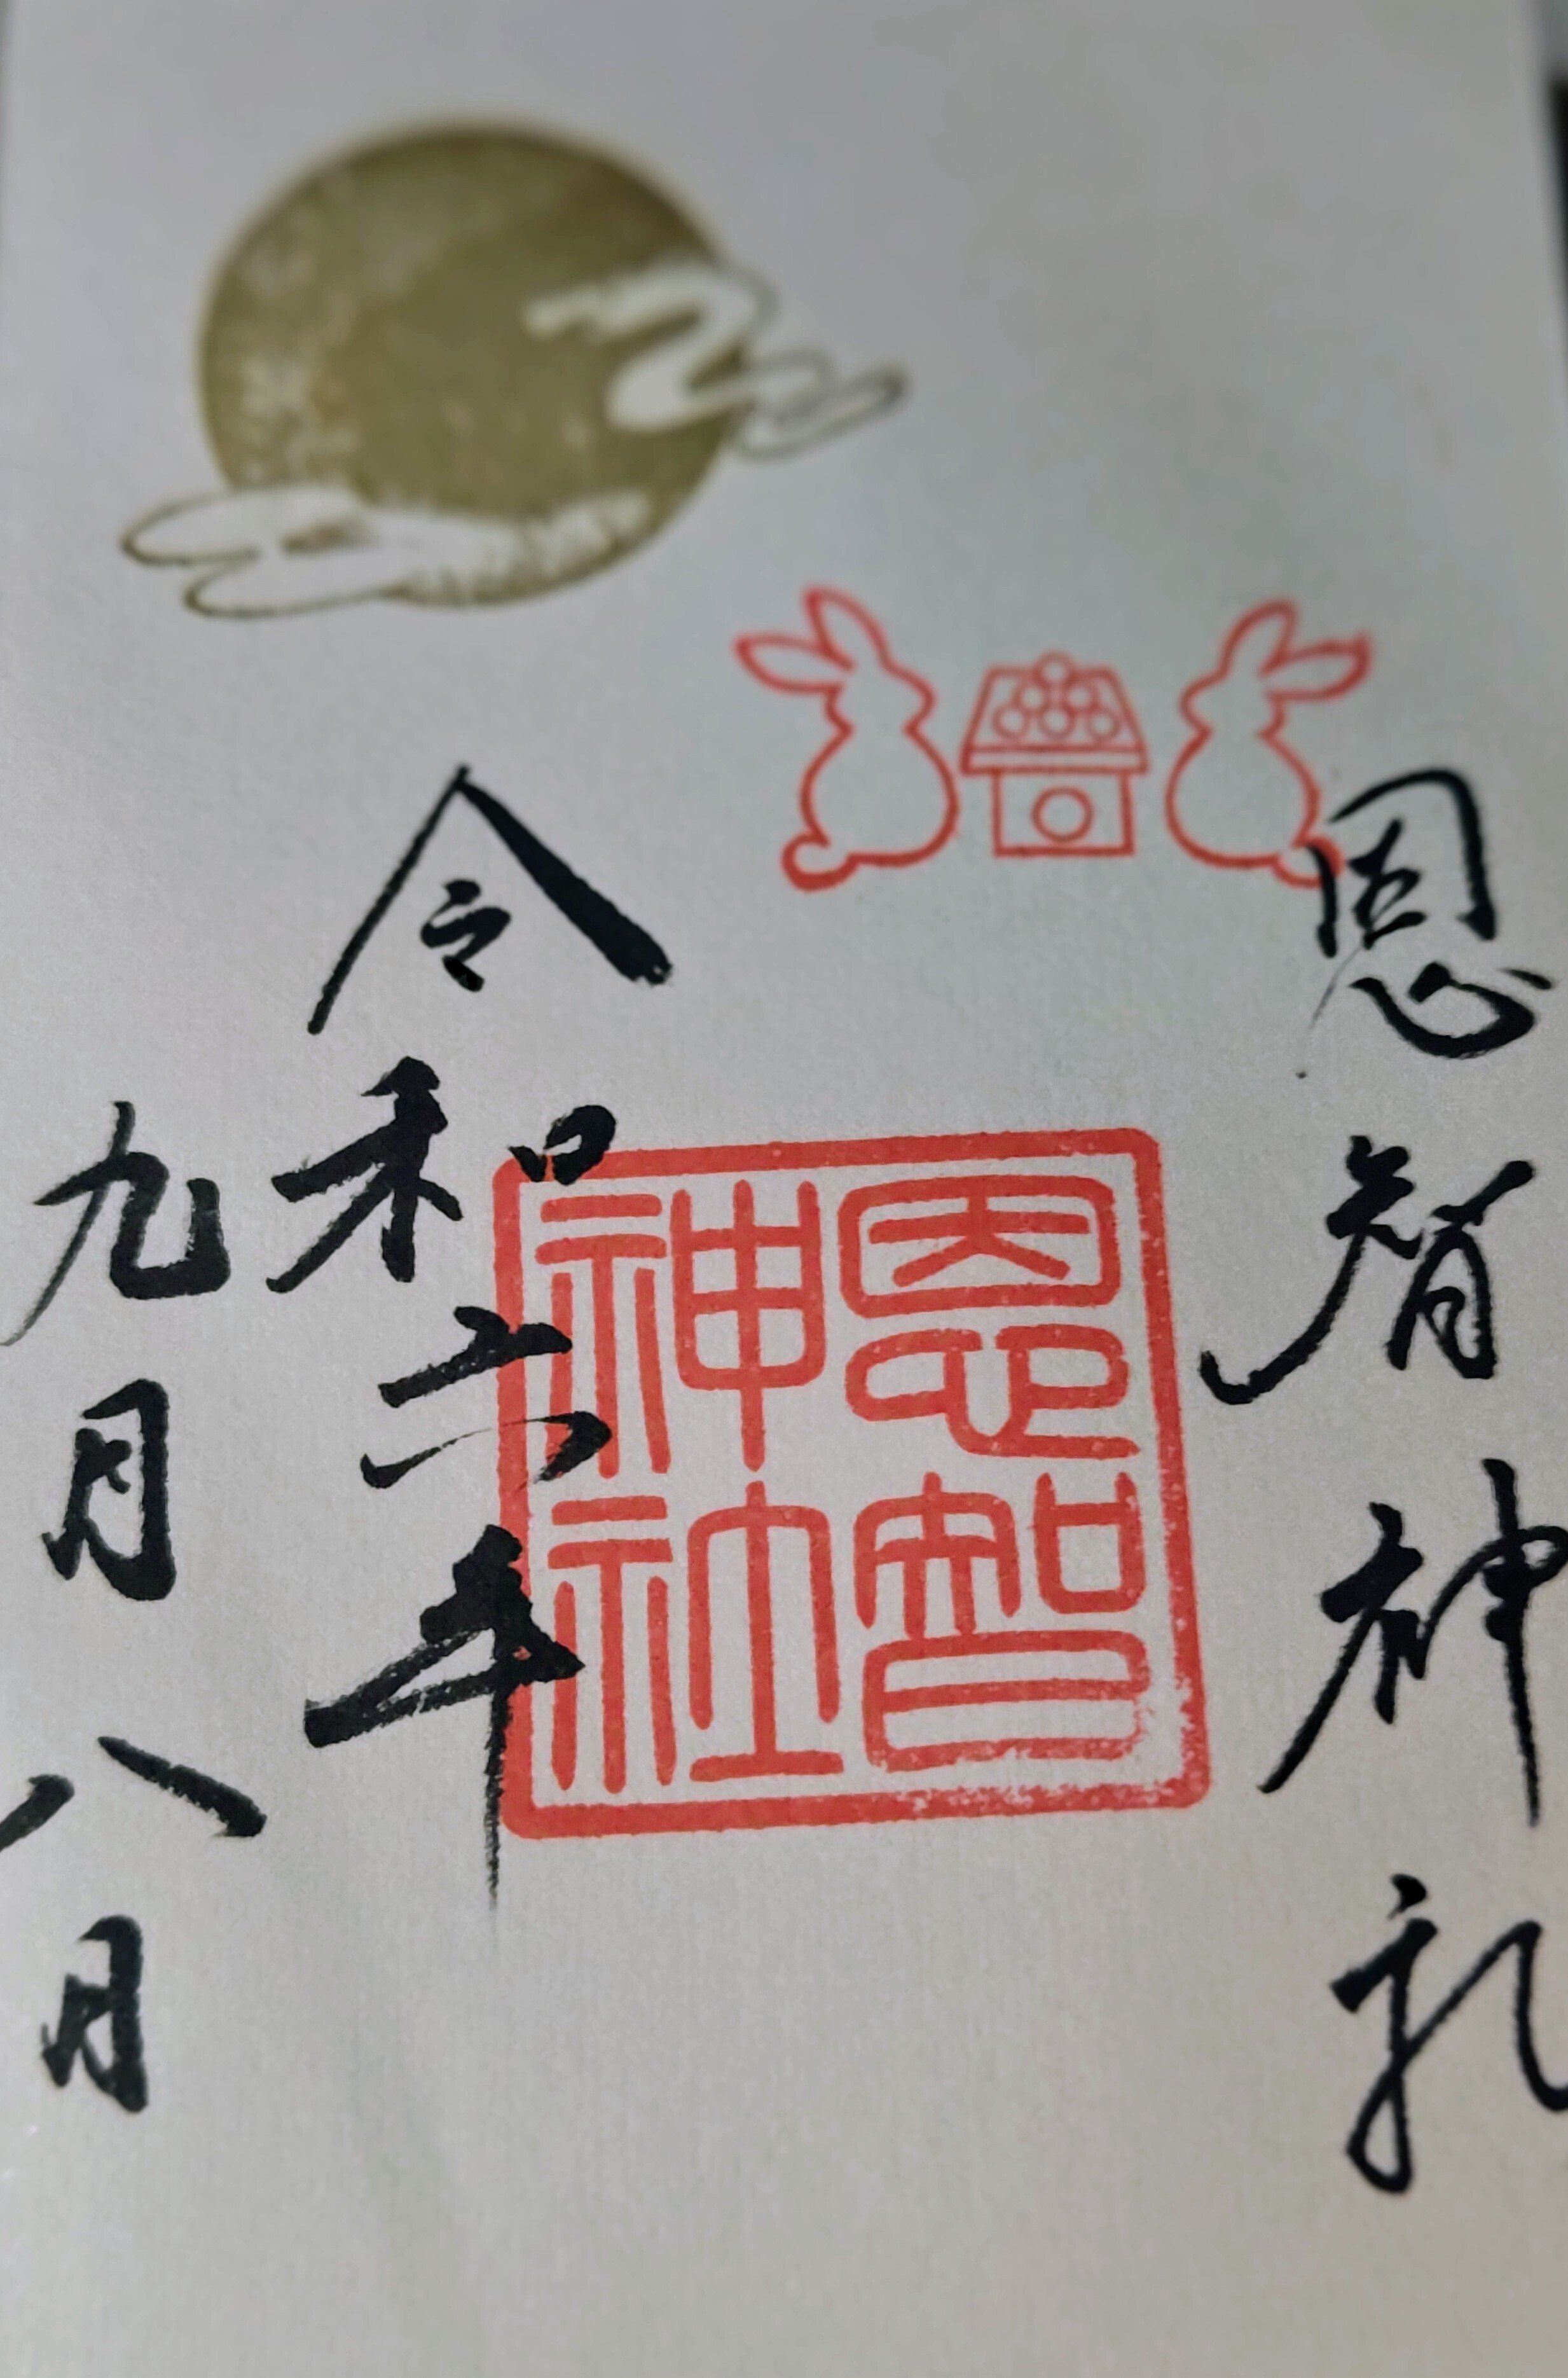 恩智神社
恩智
神社
令和六年
九月八日